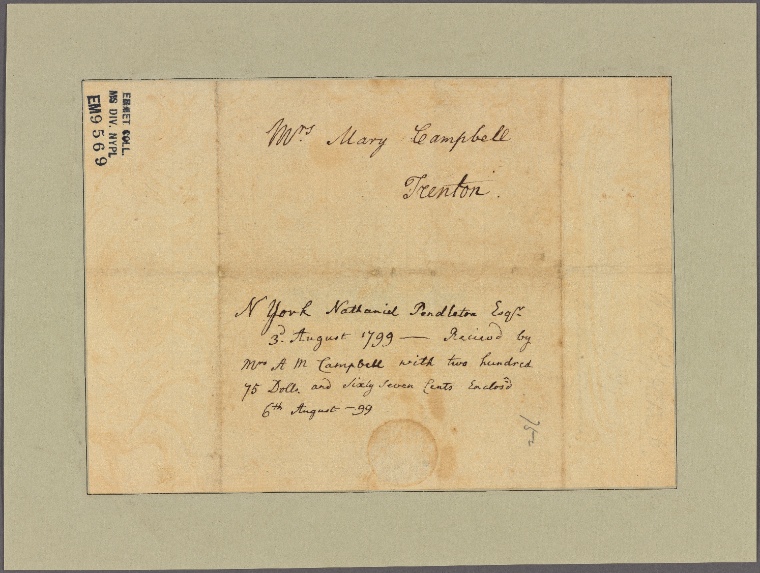 EMMET COLL.
MS DIV. NYPL
EM9569
Mrs Mary Campbell
Trenton.
N York Nathaniel Pendleton Esqr
3d. August 1799 — Recievd by
Mrs A M Campbell with two hundred
75 Dolls. and Sixty Seven Cents Enclosd
6th August -99